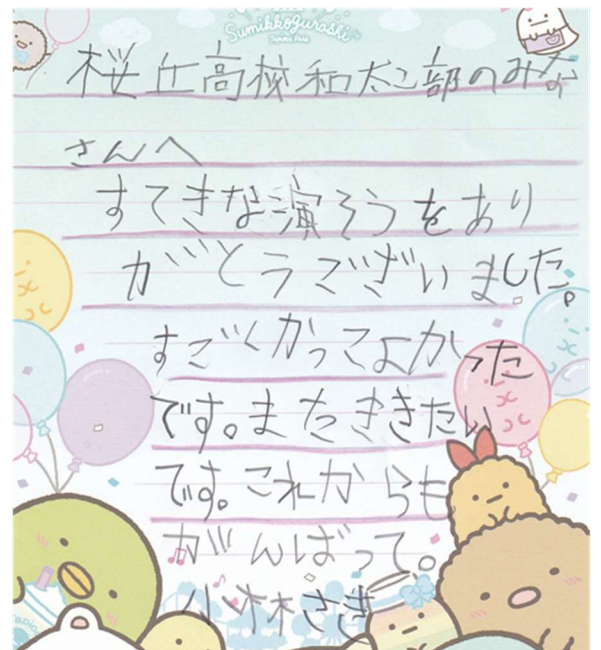 Sumikkogurashi
桜丘高校和太こ部のみな
さんへ
すてきな演そうをあり
がとうございました。
すごくかっこよかった
です。またききたい
です。これからも
がんばって。
小林さき